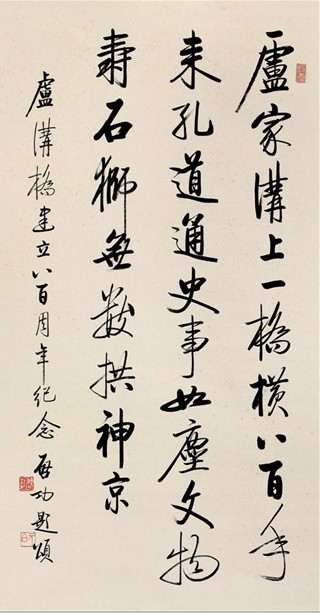 盧家溝上一橋橫八百年
来孔道通史事如塵文物
壽石獅無數拱神京
盧溝橋建立八百周年紀念 啟功題頌